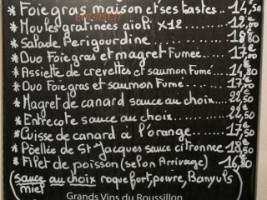 * Foie gras maison et ses tostes.. 14,50
* Moules gratinées aïoli x12 ... 12,
* Salade Perigourdine
* Duo Foie gras et magret Fumée... 17,
* Assiette de crevettes et saumon Fumé.. 14,80
* Duo Foie gras et saumon Fumé.. 17,
* Magret de canard sauce au choix.. 22,50
* Entrecote sauce au choix... 24,50
* Cuisse de canard à l'orange... 17,50
* Pöellée de St Jacques sauce citronnée 18,50
* Filet de poisson (selon Arrivage) 16,80
(sauce au choix roquefort, poivre, Banyuls
miel
Grands Vins du Roussillon